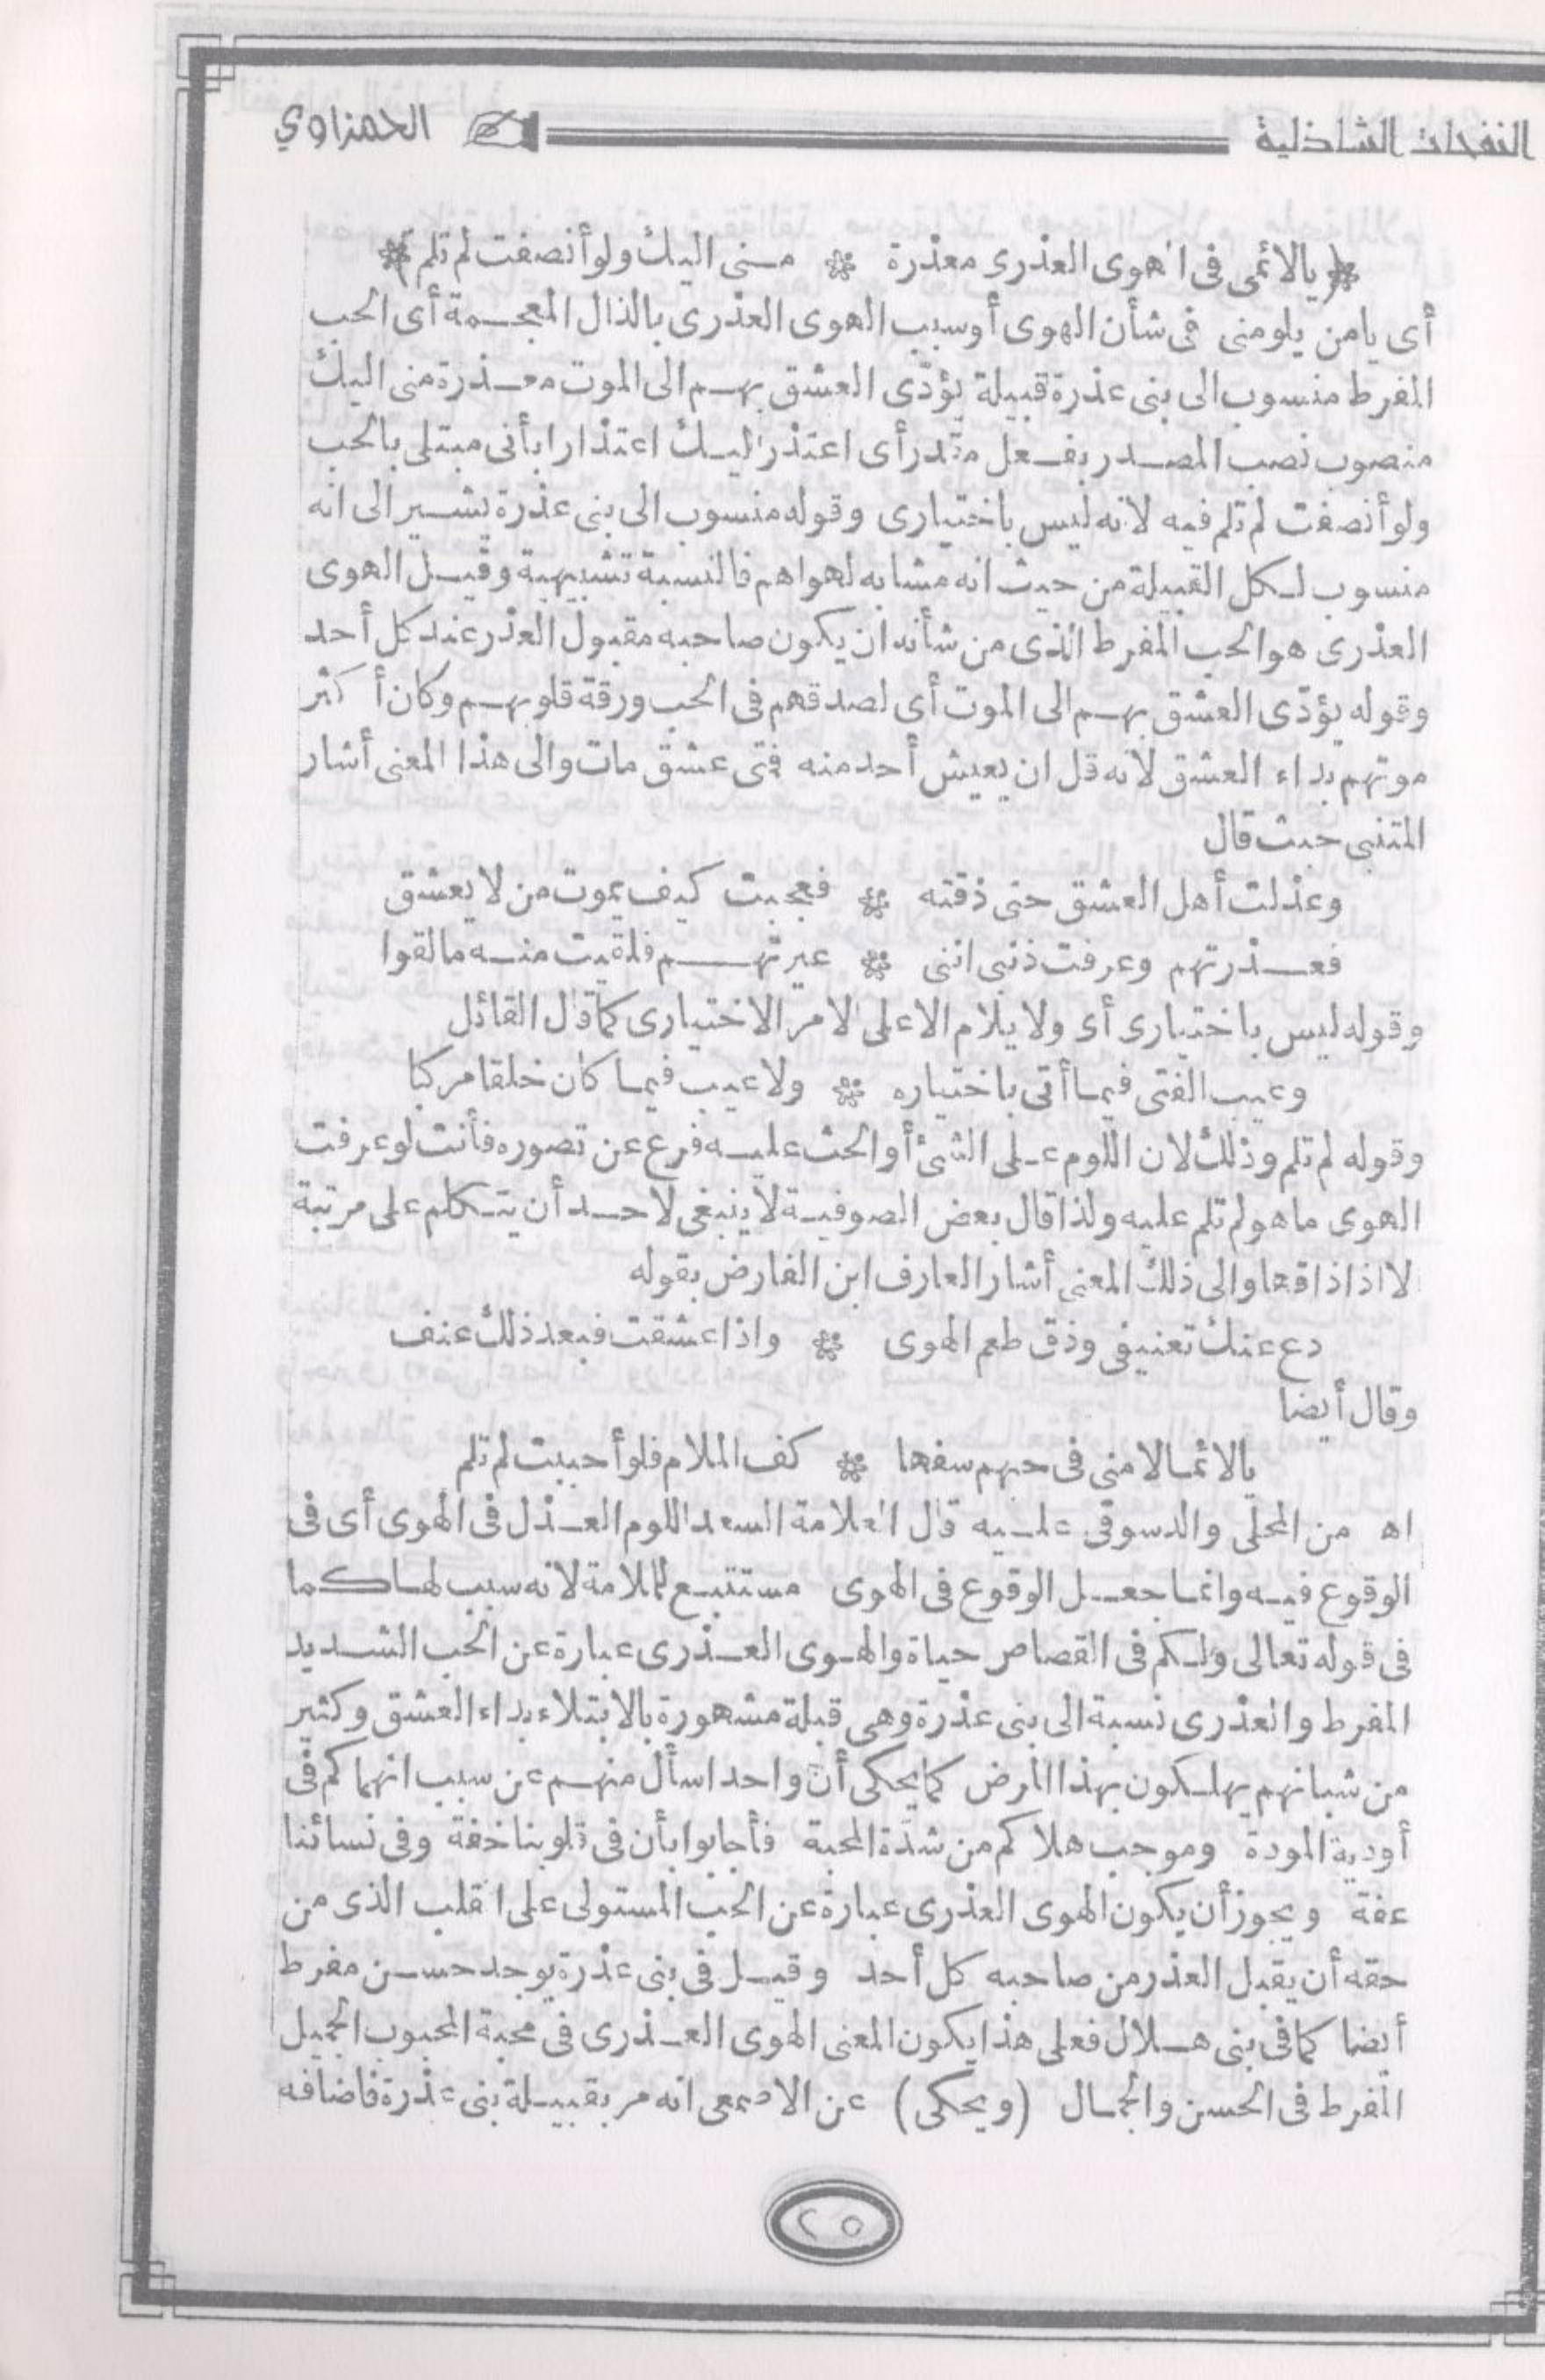 النفحات الشاذلية
الحمزاوي
﴿يالائمى فى الهوى العذرى معذرة * مـنى اليك ولو أنصفت لم تلم﴾
أى يامن يلومنى فى شأن الهوى أوسبب الهوى العذرى بالذال المعجـمة أى الحب
المفرط منسوب الى بنى عذرة قبيلة يؤدّى العشق بهـم الى الموت معـذرة منى اليك
منصوب نصب المصـدر بفـعل مقدر أى اعتذر اليـك اعتذارا بأنى مبتلى بالحب
ولو أنصفت لم تلم فيه لانه ليس باختيارى وقوله منسوب الى بنى عذرة يشـير الى انه
منسوب لـكل القبيلة من حيث انه مشابه لهواهم فالنسبة تشبيهية وقيـل الهوى
العذرى هو الحب المفرط الذى من شأنه ان يكون صاحبه مقبول العذر عند كل أحد
وقوله يؤدّى العشق بهـم الى الموت أى لصدقهم فى الحب ورقة قلوبهـم وكان أكثر
موتهم بداء العشق لانه قل ان يعيش أحد منه فتى عشق مات والى هذا المعنى أشار
المتنبى حيث قال
وعذلت أهل العشق حتى ذقته * فعجبت كيف يموت من لا يعشق
فعـذرتهم وعرفت ذنبى اننى * عيرتهـم فلقيت منـه ما لقوا
وقوله ليس باختيارى أى ولا يلام الا على الامر الاختيارى كما قال القائل
وعيب الفتى فيما أتى باختياره * ولا عيب فيما كان خلقا مركبا
وقوله لم تلم وذلك لان اللوم عـلى الشئ أو الحث عليـه فرع عن تصوره فأنت لو عرفت
الهوى ما هو لم تلم عليه ولذا قال بعض الصوفيـة لا ينبغى لاحـد أن يتـكلم على مرتبة
لا اذا ذاقها والى ذلك المعنى أشار العارف ابن الفارض بقوله
دع عنك تعنيفى وذق طعم الهوى * واذا عشقت فبعد ذلك عنف
وقال أيضا
يالائمـا لامنى فى حبهم سفها * كف الملام فلو أحببت لم تلم
اه من المحلى والدسوقى علـيه قال العلامة السعد اللوم العـذل فى الهوى أى فى
الوقوع فيـه وانما جعـل الوقوع فى الهوى مستتبـع للملامة لانه سبب لهـا كما
فى قوله تعالى ولـكم فى القصاص حياة والهـوى العـذرى عبارة عن الحب الشـديد
المفرط والعذرى نسبة الى بنى عذرة وهى قبلة مشهورة بالابتلاء بداء العشق وكثير
من شبانهم يهلـكون بهذا المرض كما يحكى أنّ واحدا سأل منهـم عن سبب انهما كم فى
أودية المودة وموجب هلاكم من شدّة المحبة فأجابوا بأن فى قلوبنا خفة وفى نسائنا
عفة ويجوز أن يكون الهوى العذرى عبارة عن الحب المستولى على القلب الذى من
حقه أن يقبل العذر من صاحبه كل أحد وقيـل فى بنى عذرة يوجد حسـن مفرط
أيضا كما فى بنى هـلال فعلى هذا يكون المعنى الهوى العـذرى فى محبة المحبوب الجميل
المفرط فى الحسن والجمـال (ويحكى) عن الاصمعى انه مر بقبيـلة بنى عذرة فاضافه
٢٥